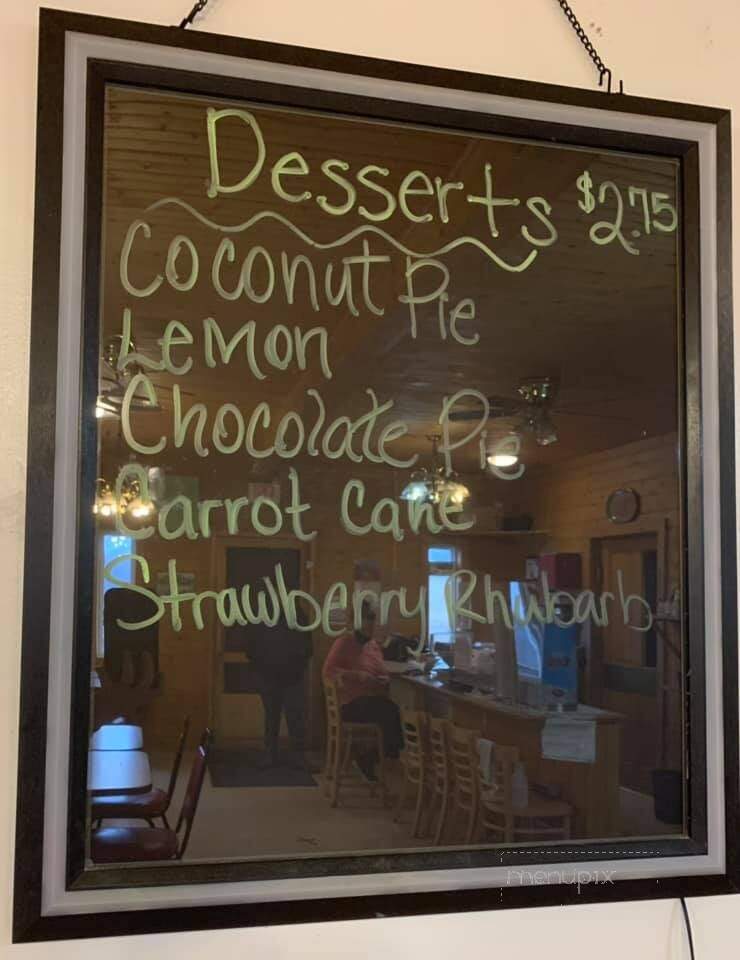 Desserts $2.75
Coconut Pie
Lemon
Chocolate Pie
Carrot Cake
Strawberry Rhubarb
menupix